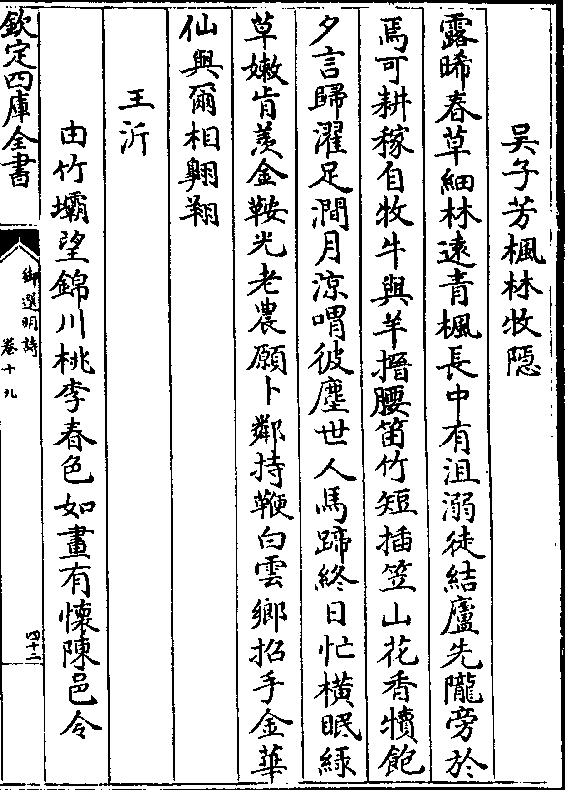 吳子芳楓林牧隱
露晞春草細林逺青楓長中有沮溺徒結廬先隴旁於
焉可耕稼自牧牛與羊搢腰笛竹短插笠山花香犢飽
夕言歸濯足澗月涼喟彼塵世人馬蹄終日忙橫眠緑
草嫩肯羨金鞍光老農願卜鄰持鞭白雲鄉招手金華
仙與爾相翺翔
王沂
由竹壩望錦川桃李春色如畫有懷陳邑令
欽定四庫全書
御選明詩
卷十九
四十二